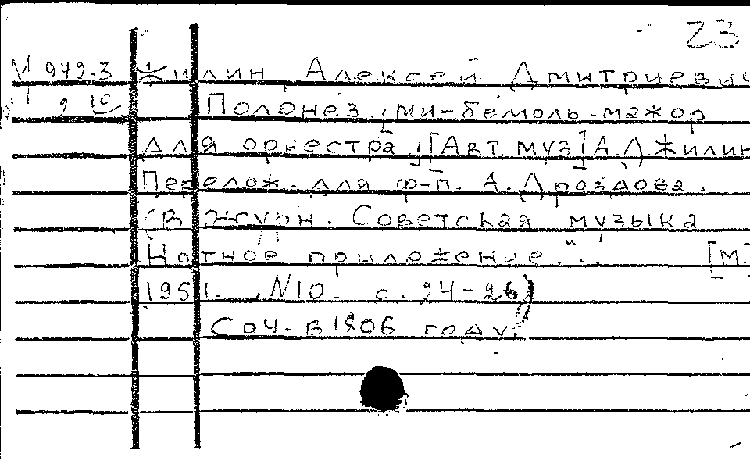 23
М 979-3 Жилин, Алексей Дмитриевич
Полонез ми-бемоль-мажор
для оркестра [Авт. муз.] А.Д Жилин
Перелож. для ф-п. А. Дроздова.
(В журн. Советская музыка
Нотное приложение". [М.
1951. N10. с. 24-26)
Соч. в 1806 году.